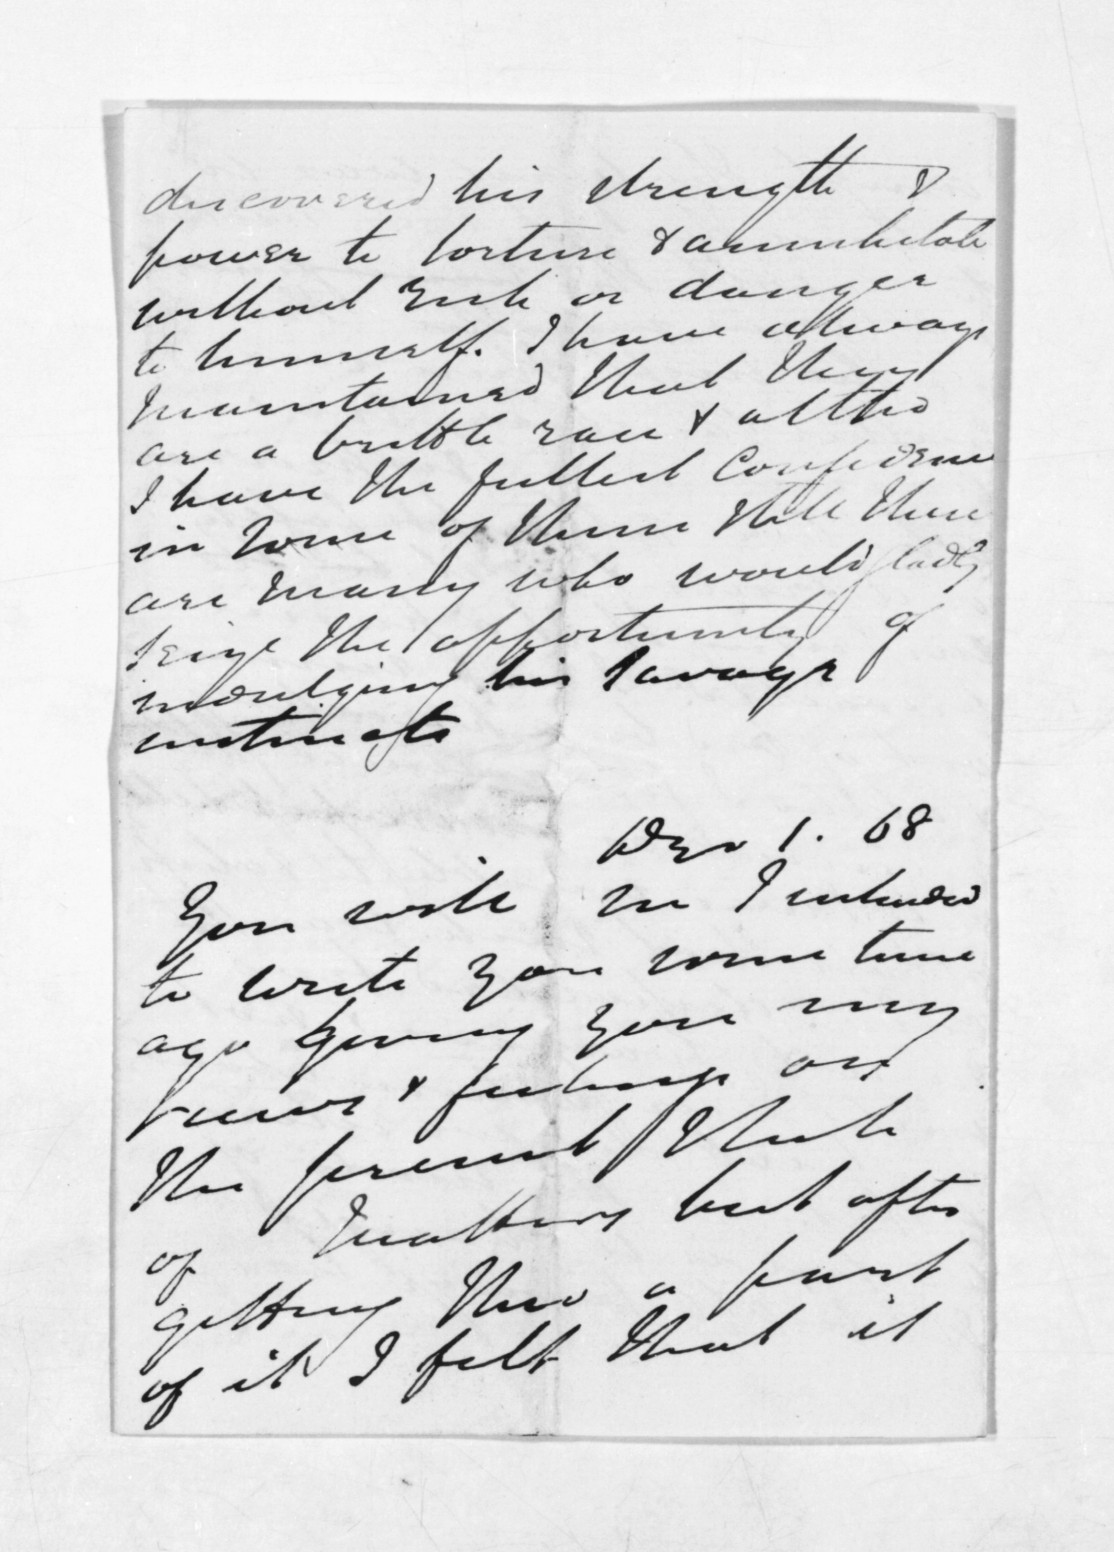 discovered his strength &
power to torture & annihilate
without risk or danger
to himself. I have always
maintained that they
are a brittle race & altho
I have the fullest confidence
in some of them still there
are many who would gladly
seize the opportunity of
indulging his savage
instincts
Dec 1. 68
You will see I intended
to write you some time
ago giving you my
views & feelings on
the present state
of matters but after
getting thro a part
of it I felt that it